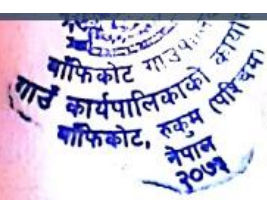 बाँफिकोट गाउपा
गाउँ कार्यपालिकाको कार्या
बाँफिकोट, रुकुम (पश्चिम)
नेपाल
२०७३